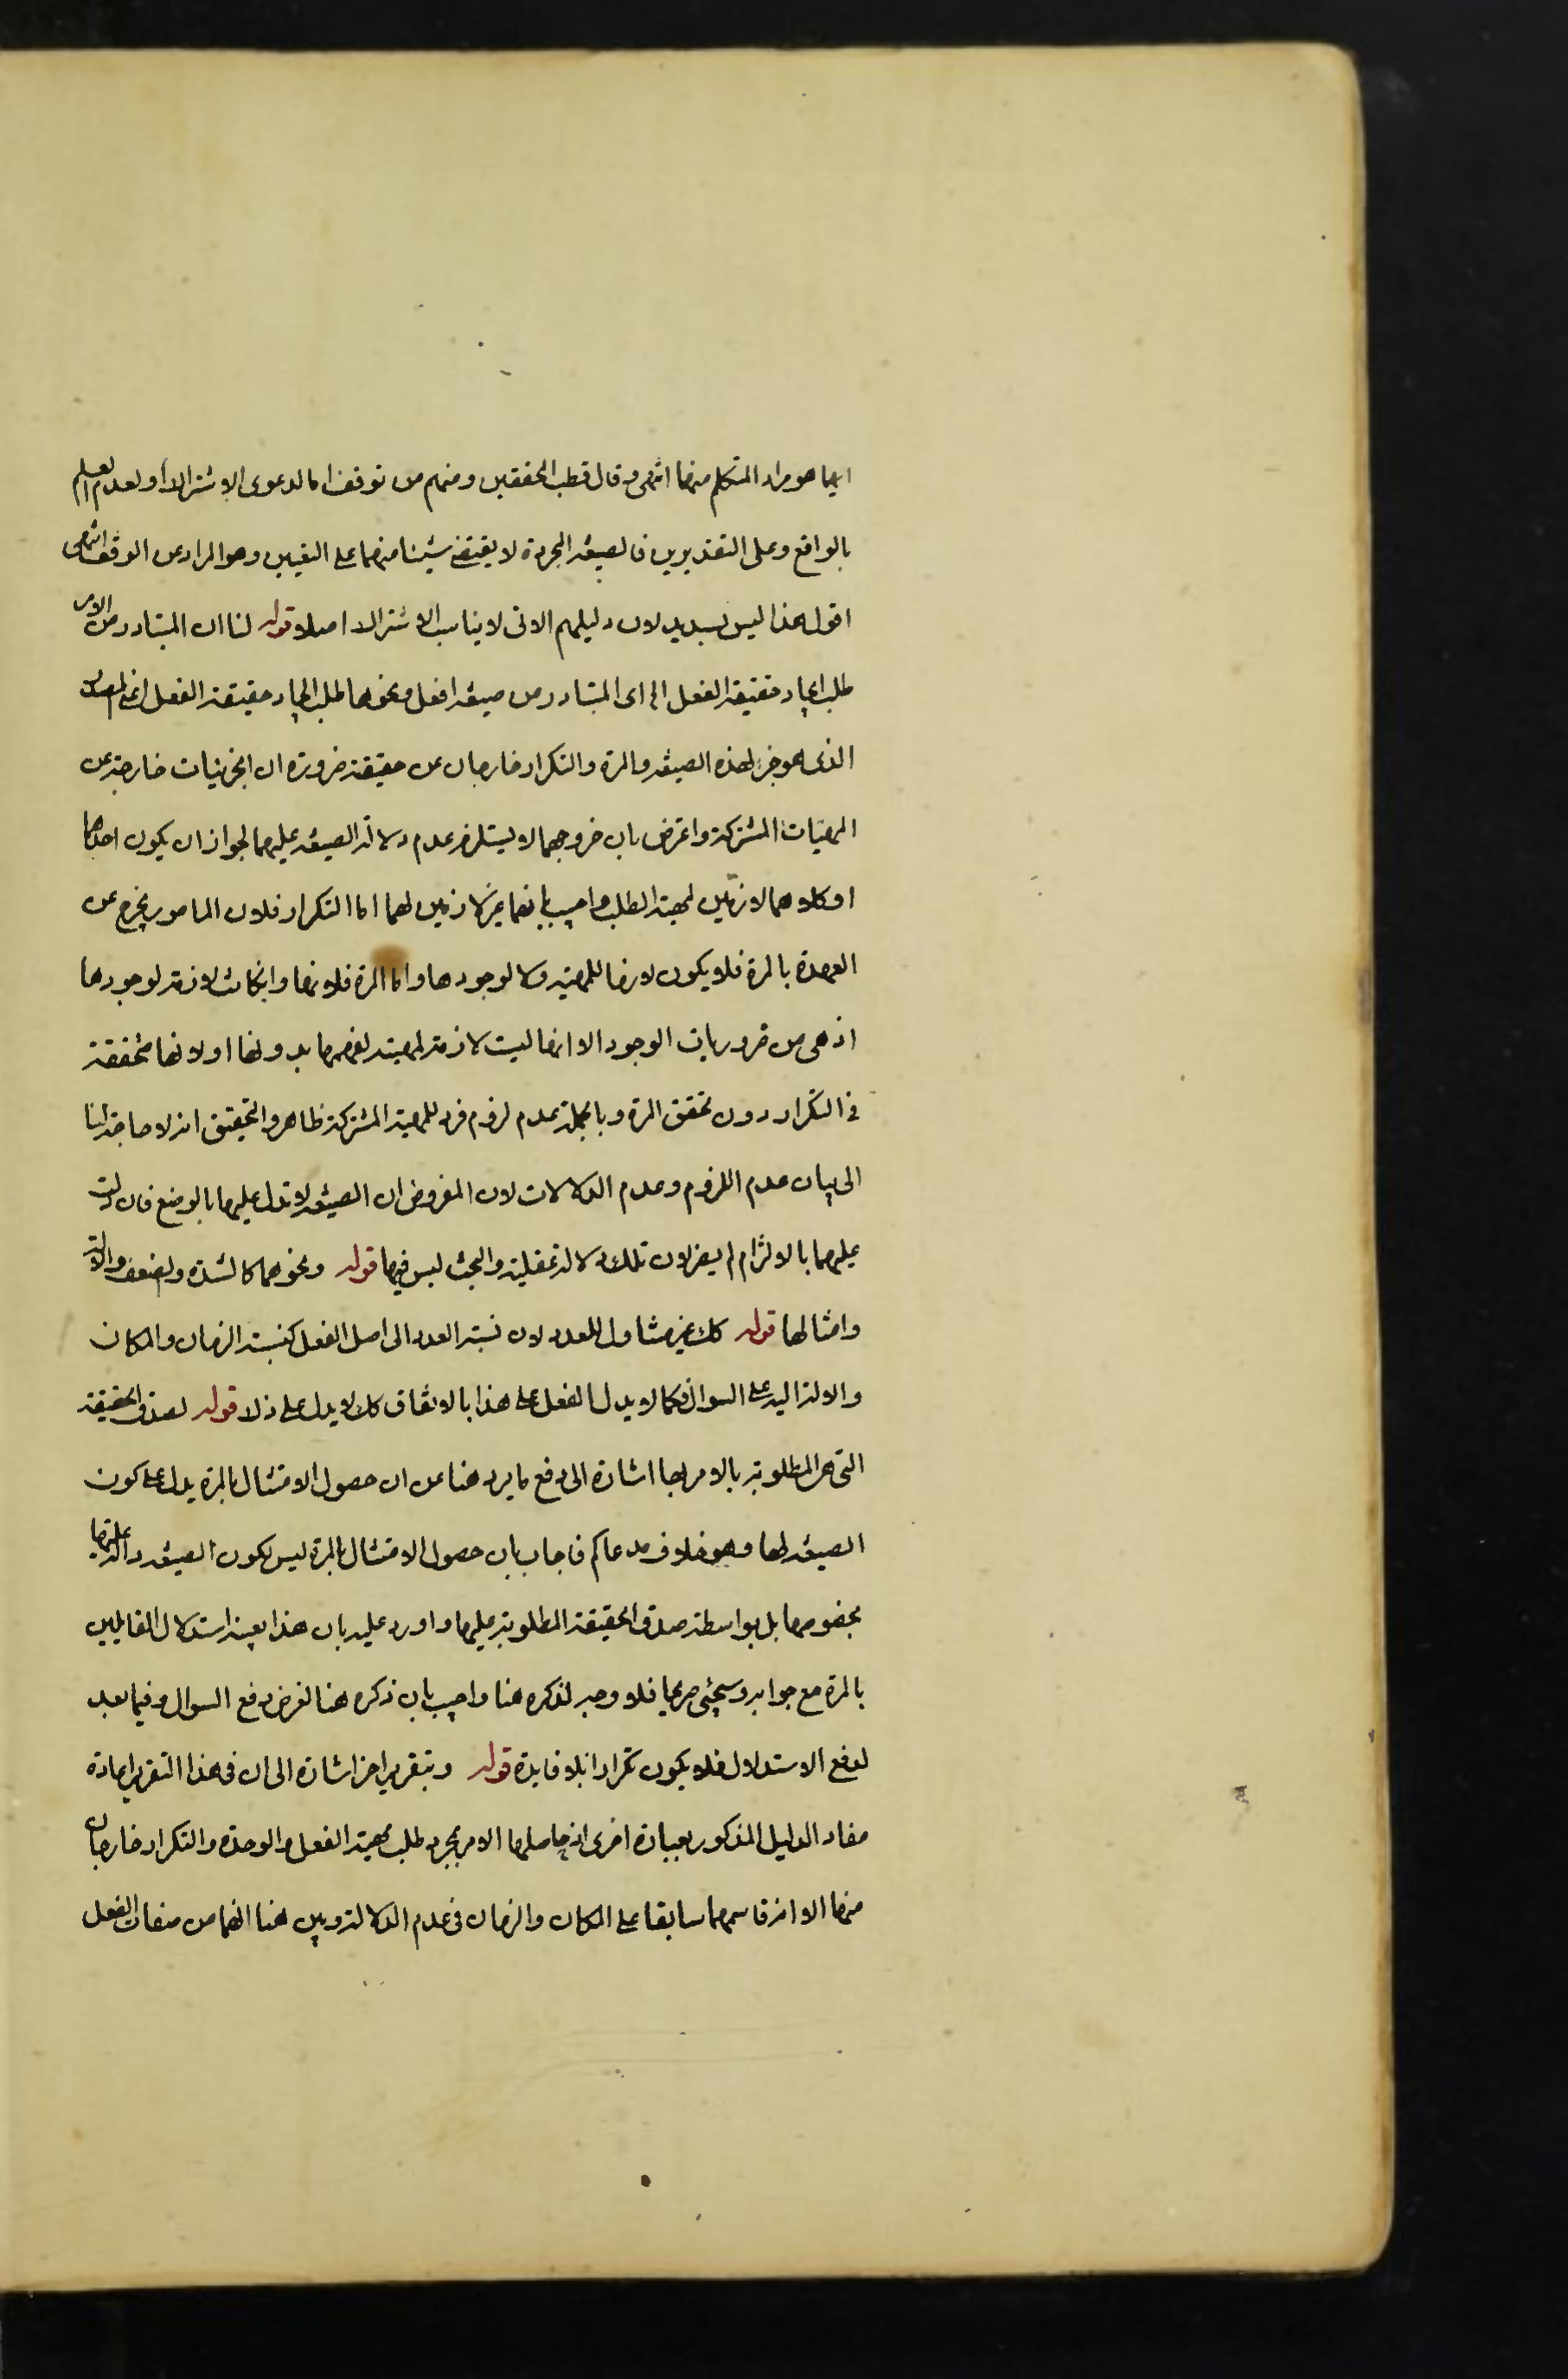 ايهما هو مراد المتكلم منها انتهى وقال قطب المحققين ومنهم من توقف اما لدعوى الاشتراك او لعدم العلم
بالواقع وعلى التقديرين فالصيغة المجردة لا يقتضى شيئا منهما على التعيين وهو المراد من الوقف انتهى
اقول هذا ليس بسديد لان دليلهم الاتى لا يناسب الاشتراك اصلا قوله لنا ان المتبادر من الامر
طلب ايجاد حقيقة الفعل الى اى المتبادر من صيغة افعل ونحوها طلب ايجاد حقيقة الفعل اعنى المصدر
الذى هو جزء لهذه الصيغة والمرة والتكرار خارجان عن حقيقته ضرورة ان الجزئيات خارجة عن
المهيات المشتركة واعترض بان خروجهما لا يستلزم عدم دلالة الصيغة عليهما لجواز ان يكون احدهما
او كلاهما لازمين لمهية الطلب واجيب بانهما غير لازمين لهما اما التكرار فلان المامور يخرج عن
العهدة بالمرة فلا يكون لازما للمهية ولا لوجودها واما المرة فلانها وان كانت لازمة لوجودها
اذ هى من ضروريات الوجود الا انها ليست لازمة لمهيته لفهمها بدونها او لانها متحققة
فى التكرار دون تحقق المرة وبالجملة عدم لزوم فرد للمهية المشتركة ظاهر والتحقيق انه لا حاجة لنا
الى بيان عدم اللزوم وعدم الدلالات لان المفروض ان الصيغة لا تدل عليهما بالوضع فان دلت
عليهما بالالتزام لم يضر لان تلك دلالة عقلية والبحث ليس فيها قوله ونحوهما كالشدة والضعف والالة
وامثالها قوله كك غير متناول للعدد لان نسبة العدد الى اصل الفعل كنسبة الزمان والمكان
والالة اليه على السواء فكما لا يدل الفعل على هذا بالاتفاق كك لا يدل على ذلك قوله لصدق الحقيقة
التى هى المطلوبة بالامر بها اشارة الى دفع ما يرد هنا من ان حصول الامتثال بالمرة يدل على كون
الصيغة لها وهو خلاف مدعاكم فاجاب بان حصول الامتثال بالمرة ليس لكون الصيغة دالة عليها
بخصوصها بل بواسطة صدق الحقيقة المطلوبة عليها واورد عليه بان هذا بعينه استدلال القايلين
بالمرة مع جوابه وسيجئ صريحا فلا وجه لذكره هنا واجيب بان ذكره هنا لغرض دفع السوال وفيما بعد
لدفع الاستدلال فلا يكون تكرارا بلا فايدة قوله وبتقرير اخر اشارة الى ان فى هذا التقرير اعادة
مفاد الدليل المذكور بعبارة اخرى اذ حاصلها الامر بمجرد طلب مهية الفعل والوحدة والتكرار خارجان
منها الا انه قاسهما سابقا على المكان والزمان فى عدم الدلالة وبين هنا انهما من صفات الفعل